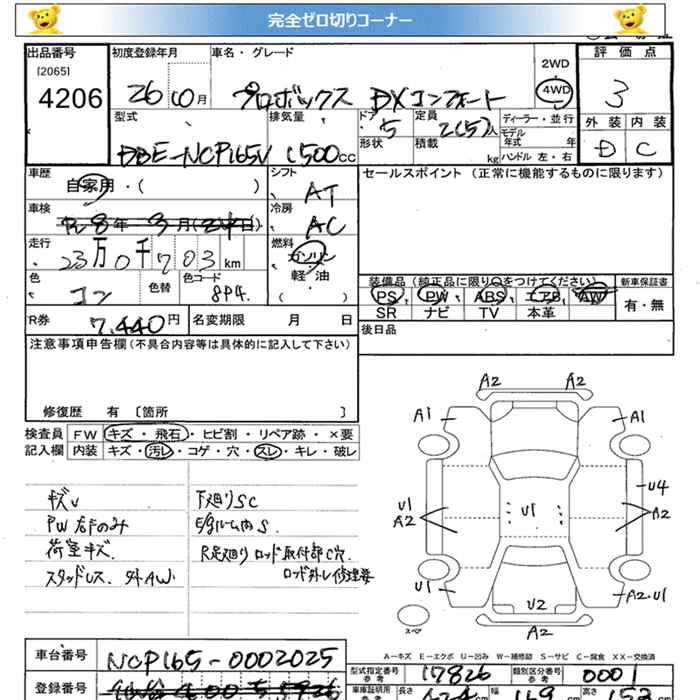 完全ゼロ切りコーナー
出品番号 初度登録年月 車名・グレード 2WD 評価点
[2065]
4206 26 10月 プロボックス DXコンフォート 4WD 3
型式 排気量 ドア 定員 ディーラー・並行 外装 内装
5 2(5)人 モデル年式 年
DBE-NCP165V 1500cc 形状 積載 kg ハンドル 左・右 D C
車歴 シフト セールスポイント (正常に機能するものに限ります)
自家用・( ) AT
車検 冷房
R 8年 3月 AC
走行 燃料
23万0千703km ガソリン
軽・油
( )
色 色替 色コード 装備品(純正品に限り○をつけてください) 新車保証書
コン 8P4 PS PW ABS エアB AW 有・無
SR ナビ TV 本革
R券 7,440円 名変期限 月 日 後日品
注意事項申告欄(不具合内容等は具体的に記入して下さい)
修復歴 有 〔箇所 〕
検査員 FW キズ・飛石・ヒビ割・リペア跡・×要
記入欄 内装 キズ・汚レ・コゲ・穴・スレ・キレ・破レ
キズV
PW右Fのみ
荷室キズ.
スタッドレス. 外AW
下廻りSC
E/gルーム内S.
R足廻り ロッド取付部C穴.
ロッド外レ修理要
A2 A2
A1 A1
U1 A2
U1
U4
A2
U1 U2 A2・U1
A2
スペア
A-キズ E-エクボ U-凹み W-補修跡 S-サビ C-腐食 XX-交換済
車台番号 NCP165-0002025
型式指定番号 参考 17826 類別区分番号 参考 0001
登録番号
車庫証明用 参考 長さ 424cm 幅 169cm 高さ 152cm